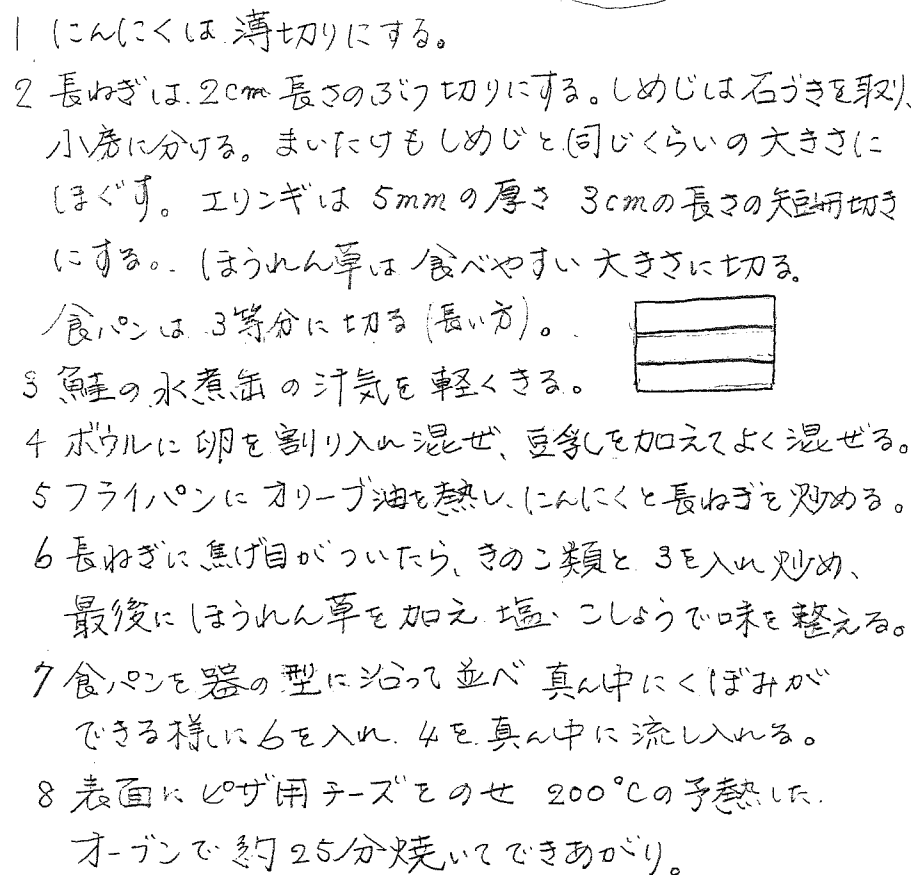 1 にんにくは薄切りにする。
2 長ねぎは2cm長さのぶつ切りにする。しめじは石づきを取り、
小房に分ける。まいたけもしめじと同じくらいの大きさに
ほぐす。エリンギは5mmの厚さ 3cmの長さの短冊切き
にする。ほうれん草は食べやすい大きさに切る。
食パンは3等分に切る(長い方)。
3 鮭の水煮缶の汁気を軽くきる。
4 ボウルに卵を割り入れ混ぜ、豆乳を加えてよく混ぜる。
5 フライパンにオリーブ油を熱し、にんにくと長ねぎを炒める。
6 長ねぎに焦げ目がついたら、きのこ類と3を入れ炒め、
最後にほうれん草を加え塩・こしょうで味を整える。
7 食パンを器の型に沿って並べ 真ん中にくぼみが
できる様に6を入れ、4を真ん中に流し入れる。
8 表面にピザ用チーズをのせ 200℃の予熱した
オーブンで約25分焼いてできあがり。